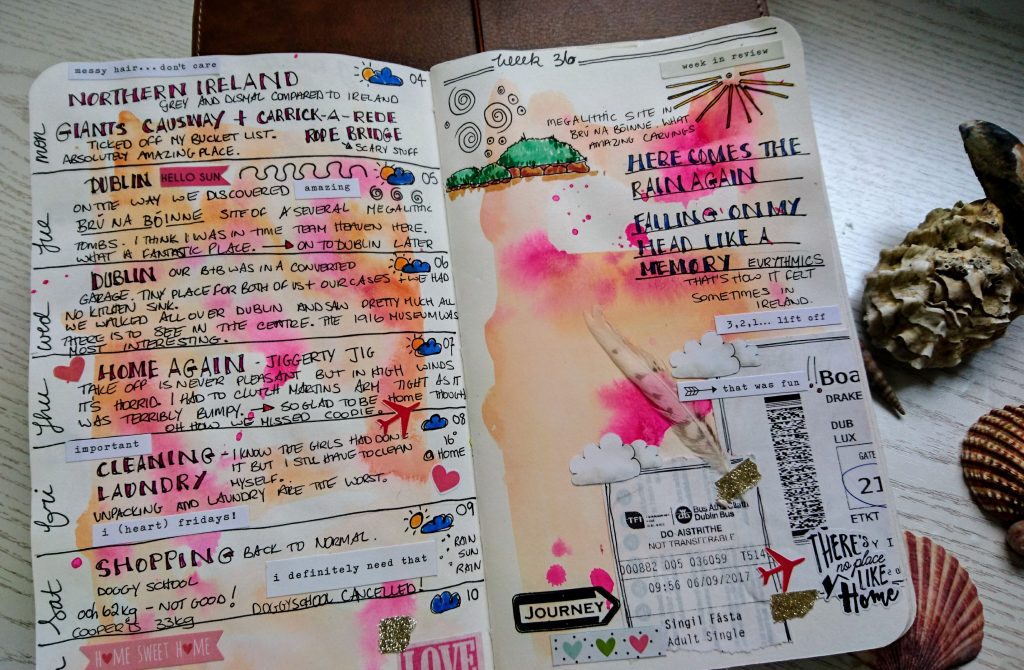 messy hair... don't care
04
mon
NORTHERN IRELAND
GREY AND DISMAL COMPARED TO IRELAND
GIANTS CAUSWAY + CARRICK-A-REDE
ROPE BRIDGE
TICKED OFF MY BUCKET LIST.
→ SCARY STUFF
ABSOLUTELY AMAZING PLACE.
05
Tue
DUBLIN
HELLO SUN
ON THE WAY WE DISCOVERED
amazing
BRÚ NA BÓINNE SITE OF A SEVERAL MEGALITHIC
TOMBS. I THINK I WAS IN TIME TEAM HEAVEN HERE.
WHAT A FANTASTIC PLACE. → ON TO DUBLIN LATER
06
wed
DUBLIN OUR B+B WAS IN A CONVERTED
GARAGE. TINY PLACE FOR BOTH OF US + OUR CASES + WE HAD
NO KITCHEN SINK.
WE WALKED ALL OVER DUBLIN AND SAW PRETTY MUCH ALL
THERE IS TO SEE IN THE CENTRE. THE 1916 MUSEUM WAS
MOST INTERESTING.
07
Thu
HOME AGAIN - JIGGERTY JIG
TAKE OFF IS NEVER PLEASANT BUT IN HIGH WINDS
IT'S HORRID. I HAD TO CLUTCH MARTINS ARM TIGHT AS IT
WAS TERRIBLY BUMPY. → SO GLAD TO BE Home THOUGH
OH HOW WE MISSED COOPIE.
08
important
16°
@ Home
Fri
CLEANING - I KNOW THE GIRLS HAD DONE
IT BUT I STILL HAVE TO CLEAN
LAUNDRY MYSELF.
UNPACKING AND LAUNDRY ARE THE WORST.
i (heart) fridays!
09
Sat
SHOPPING BACK TO NORMAL.
RAIN
SUN
RAIN
i definitely need that
DOGGY SCHOOL
DOGGYSCHOOL CANCELLED!
ooh 62kg - NOT GOOD!
COOPER IS 33kg
10
HOME SWEET HOME
LOVE
week 36
week in review
MEGALITHIC SITE IN
BRÚ NA BÓINNE. WHAT
AMAZING CARVINGS
HERE COMES THE
RAIN AGAIN
FALLING ON MY
HEAD LIKE A
MEMORY EURYTHMICS
THAT'S HOW IT FELT
SOMETIMES IN
IRELAND.
3,2,1... lift off
that was fun !!
Boa
DRAKE
DUB
LUX
GATE
21
ETKT
TFI
Bus Átha Cliath
Dublin Bus
DO-AISTRITHE
NOT TRANSFERABLE
000882 005 036059 T514
09:56 06/09/2017
Singil Fásta
Adult Single
JOURNEY
THERE'S
no place
LIKE
Home